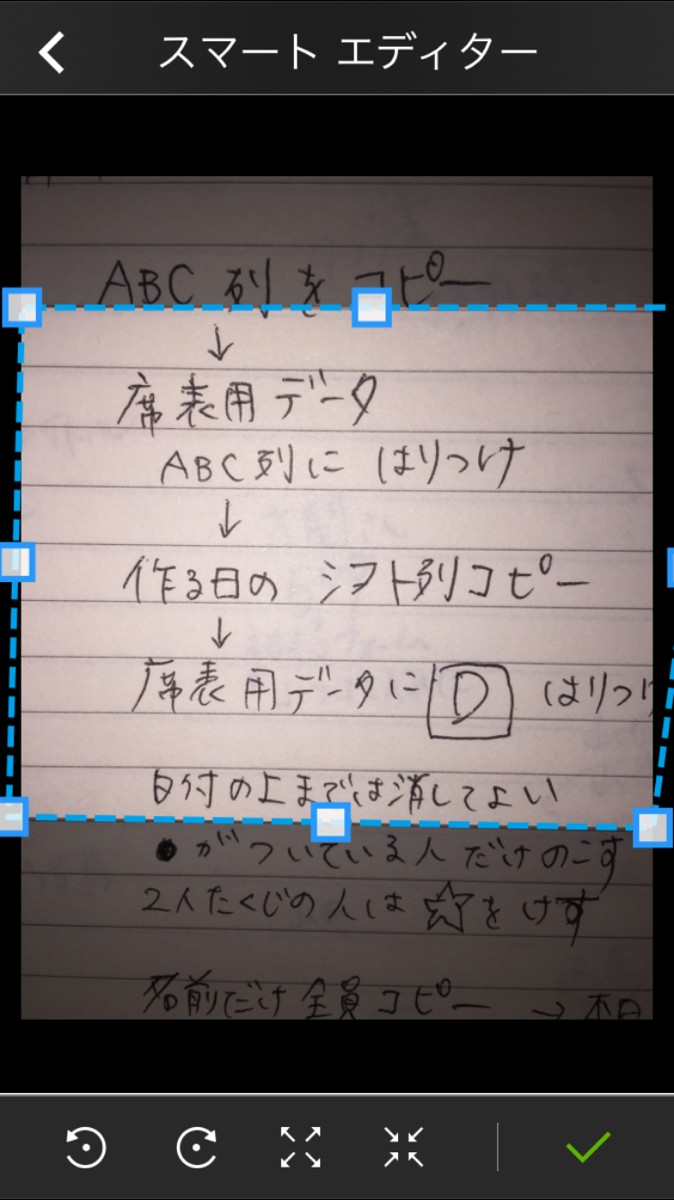 スマート エディター
ABC 列を コピー
↓
席表用データ
ABC列に はりつけ
↓
作る日の シフト列コピー
↓
席表用データに D はりつけ
日付の上までは消してよい
●がついている人だけのこす
2人たくじの人は☆をけす
名前だけ全員コピー →本日